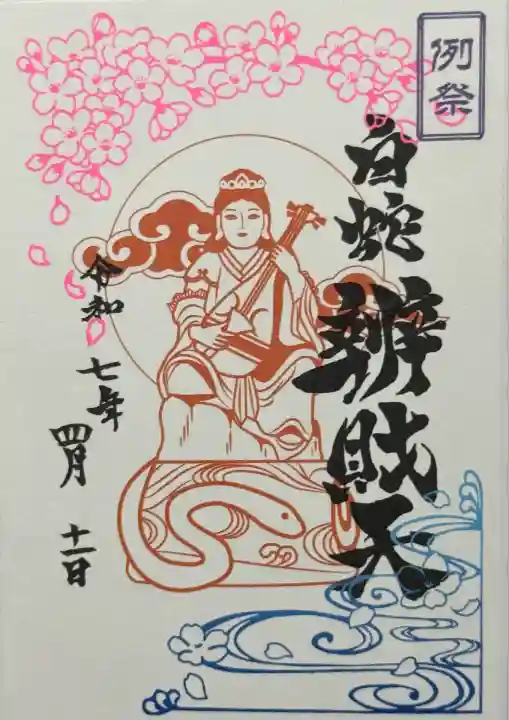 例祭
白蛇辨財天
令和
七年
四月
十一日